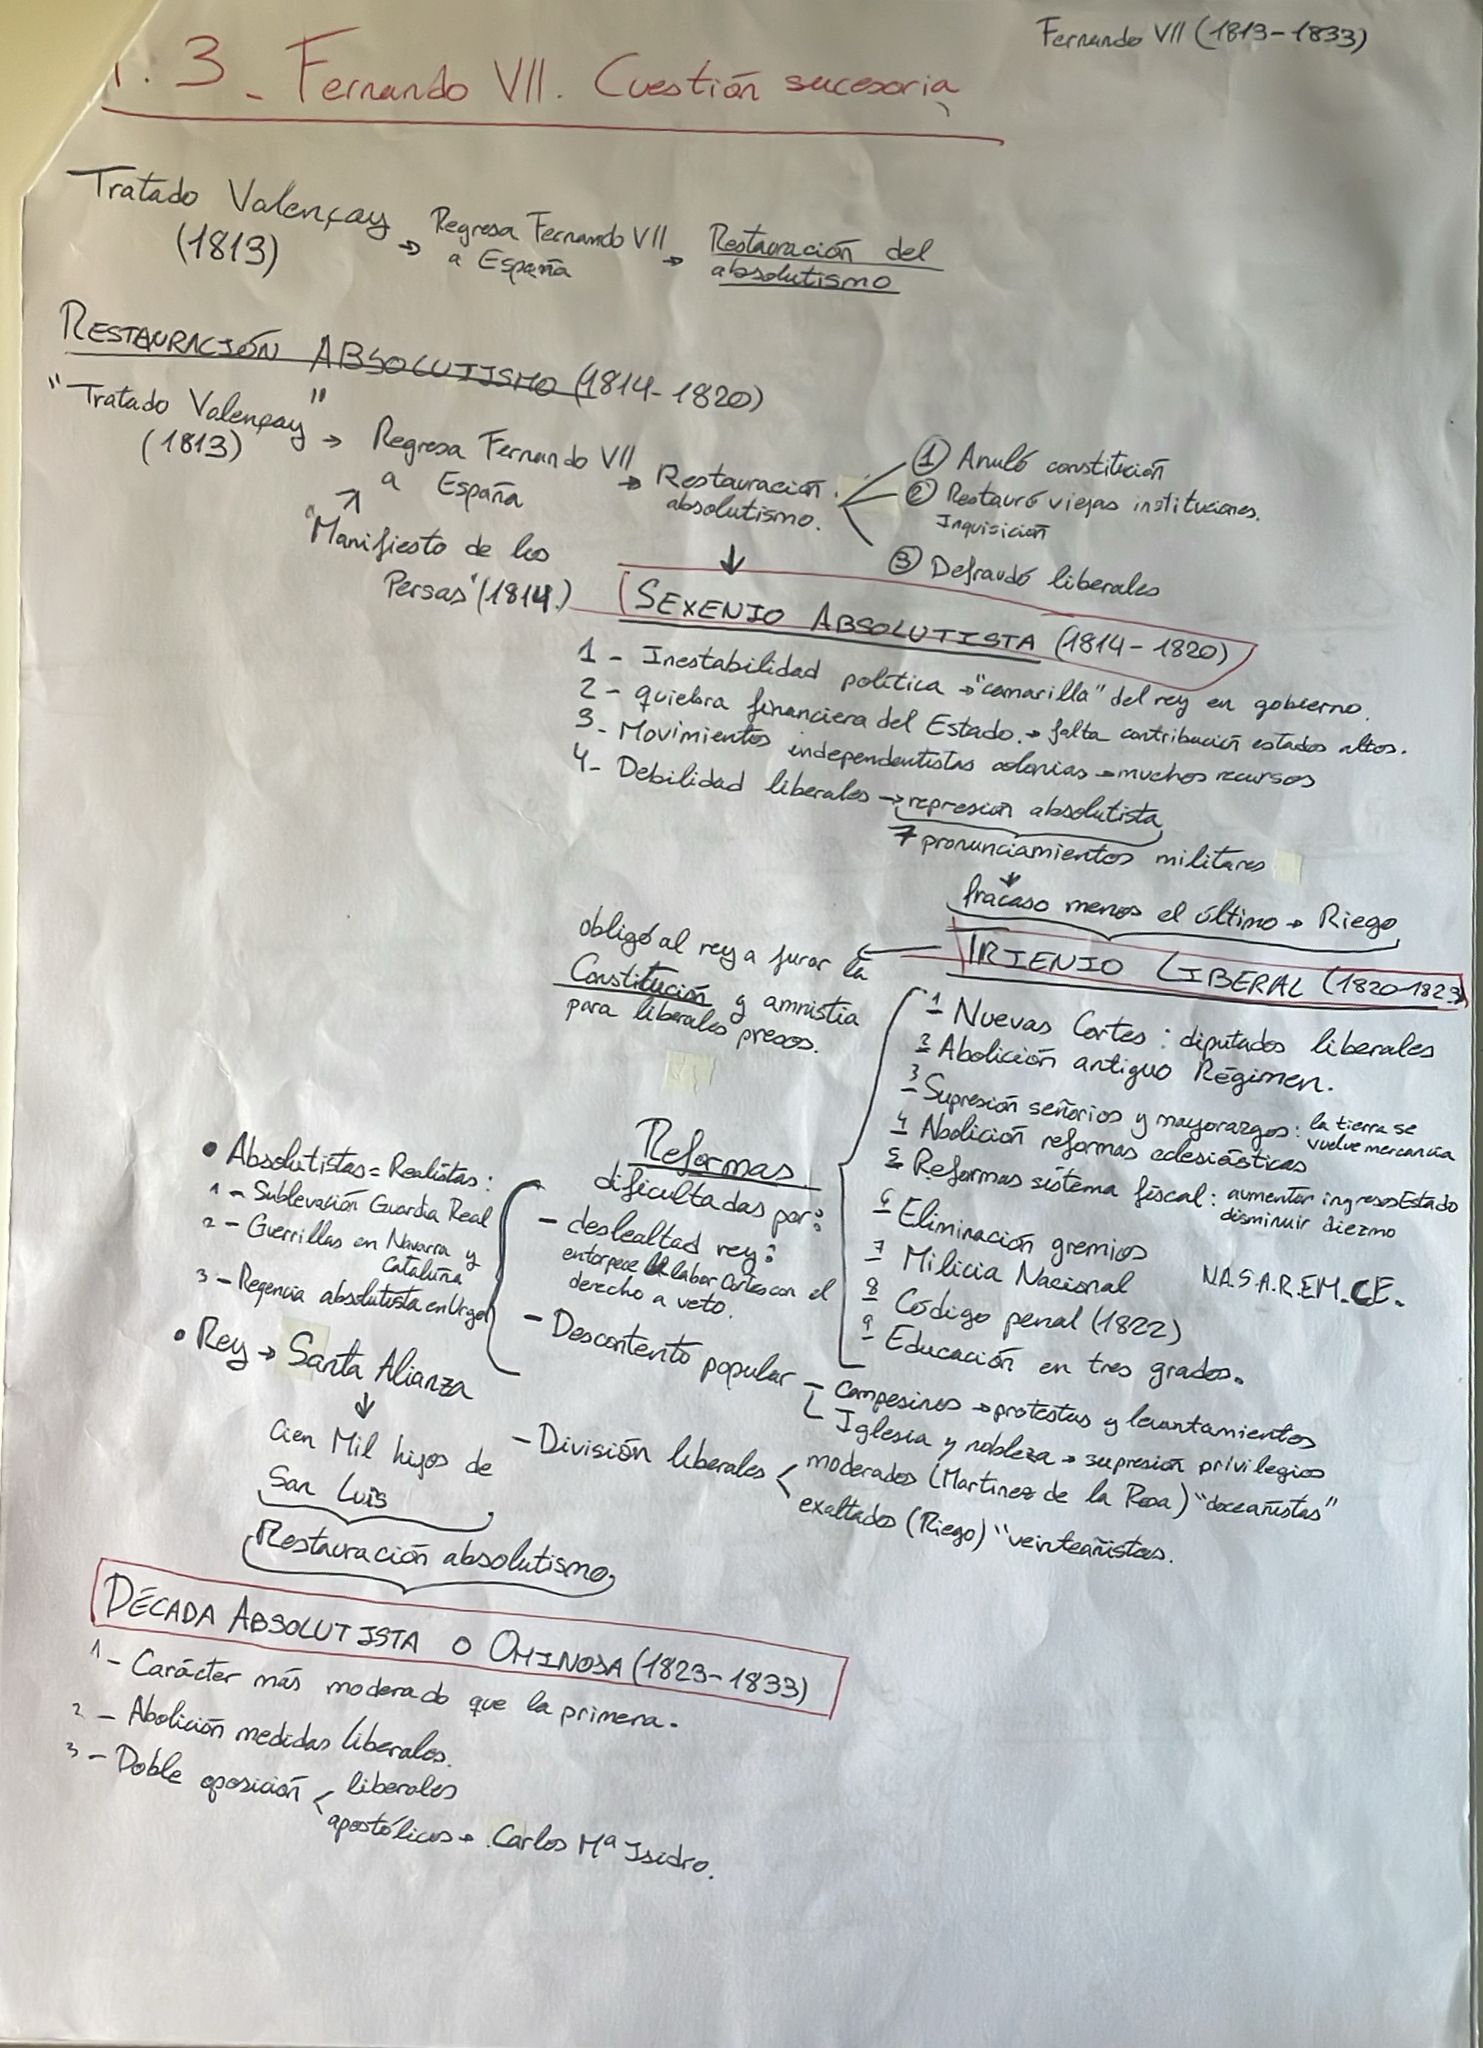 Fernando VII (1813-1833)
1.3_ Fernando VII. Cuestión sucesoria
Tratado Valençay → Regresa Fernando VII → Restauración del
(1813) a España absolutismo
RESTAURACIÓN ABSOLUTISMO (1814-1820)
"Tratado Valençay" → Regresa Fernando VII → Restauración
(1813) a España absolutismo.
① Anuló constitución
② Restauró viejas instituciones.
Inquisición
③ Defraudó liberales
↗
"Manifiesto de los
Persas" (1814)
↓
SEXENIO ABSOLUTISTA (1814-1820)
1 - Inestabilidad política → "camarilla" del rey en gobierno.
2 - quiebra financiera del Estado. → falta contribución estados altos.
3 - Movimientos independentistas colonias → muchos recursos
4 - Debilidad liberales → represión absolutista
7 pronunciamientos militares
↓
fracaso menos el último → Riego
TRIENIO LIBERAL (1820-1823)
obligó al rey a jurar la
Constitución y amnistia
para liberales presos.
1 Nuevas Cortes: diputados liberales
2 Abolición antiguo Régimen.
3 Supresión señorios y mayorazgos: la tierra se
vuelve mercancía
4 Abolición reformas eclesiásticas
5 Reformas sistema fiscal: aumentar ingresos Estado
disminuir diezmo
6 Eliminación gremios
7 Milicia Nacional
N.A.S.A.R.E.M.C.E.
8 Código penal (1822)
9 Educación en tres grados.
Reformas
dificultadas por:
- deslealtad rey:
entorpece la labor Cortes con el
derecho a veto.
- Descontento popular
- Campesinos → protestas y levantamientos
Iglesia y nobleza → supresión privilegios
- División liberales < moderados (Martinez de la Rosa) "doceañistas"
exaltados (Riego) "veinteañistas.
• Absolutistas = Realistas:
1 - Sublevación Guardia Real
2 - Guerrillas en Navarra y
Cataluña
3 - Regencia absolutista en Urgel
• Rey → Santa Alianza
↓
Cien Mil hijos de
San Luis
Restauración absolutismo
DÉCADA ABSOLUTISTA O OMINOSA (1823-1833)
1 - Carácter más moderado que la primera.
2 - Abolición medidas liberales.
3 - Doble oposición < liberales
apostólicos → Carlos Mª Isidro.